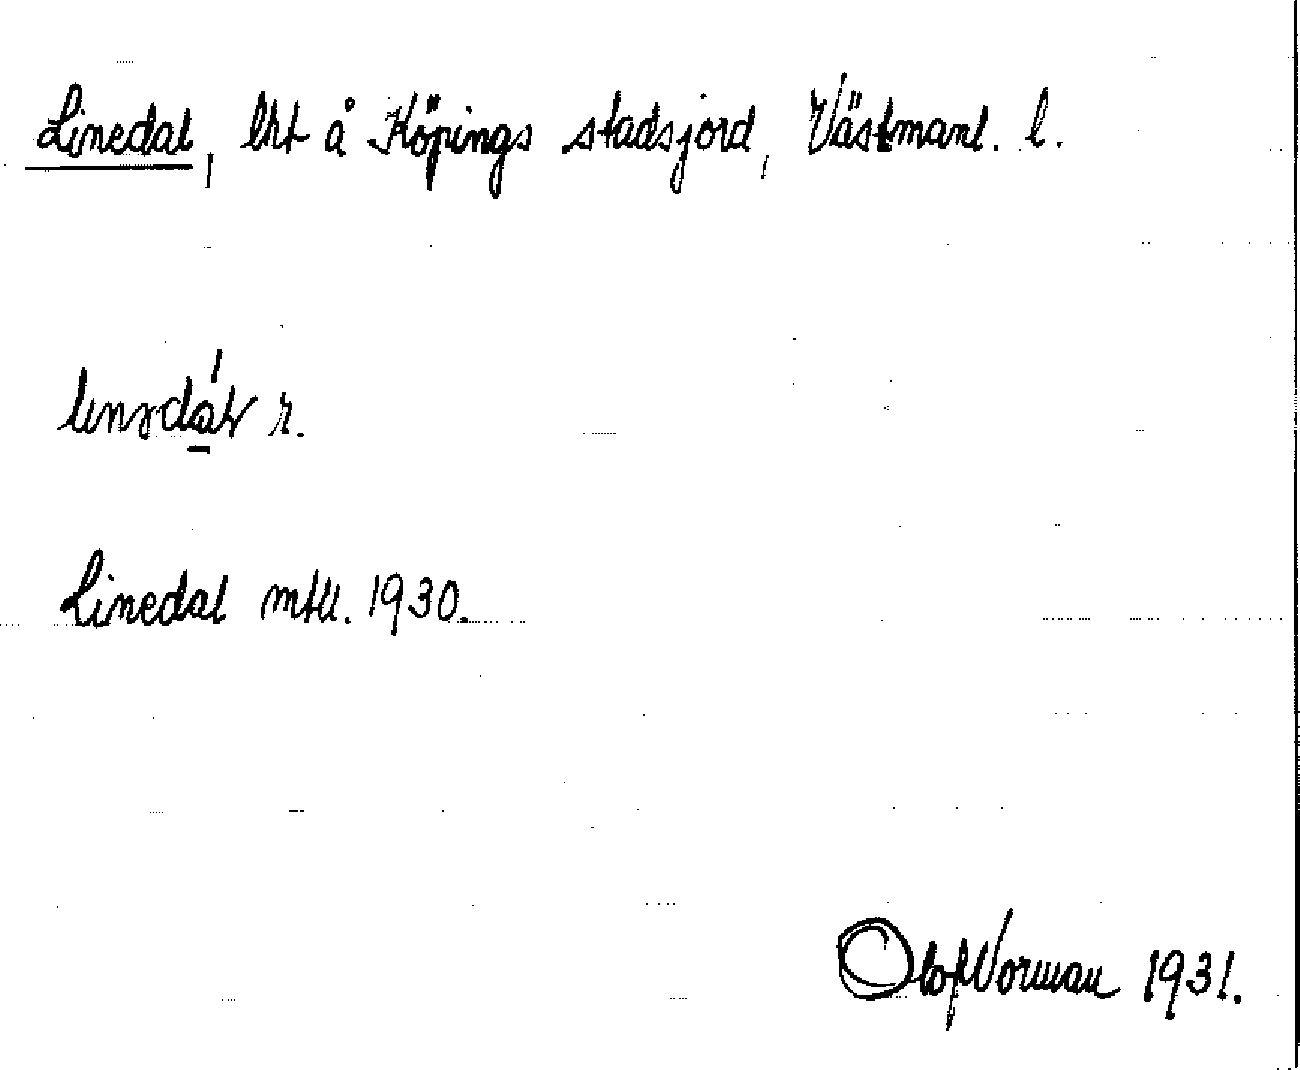 Linedal, lht å Köpings stadsjord, Västmanl. l.
r.
Linedal mtll. 1930.
Olof Norman 1931.